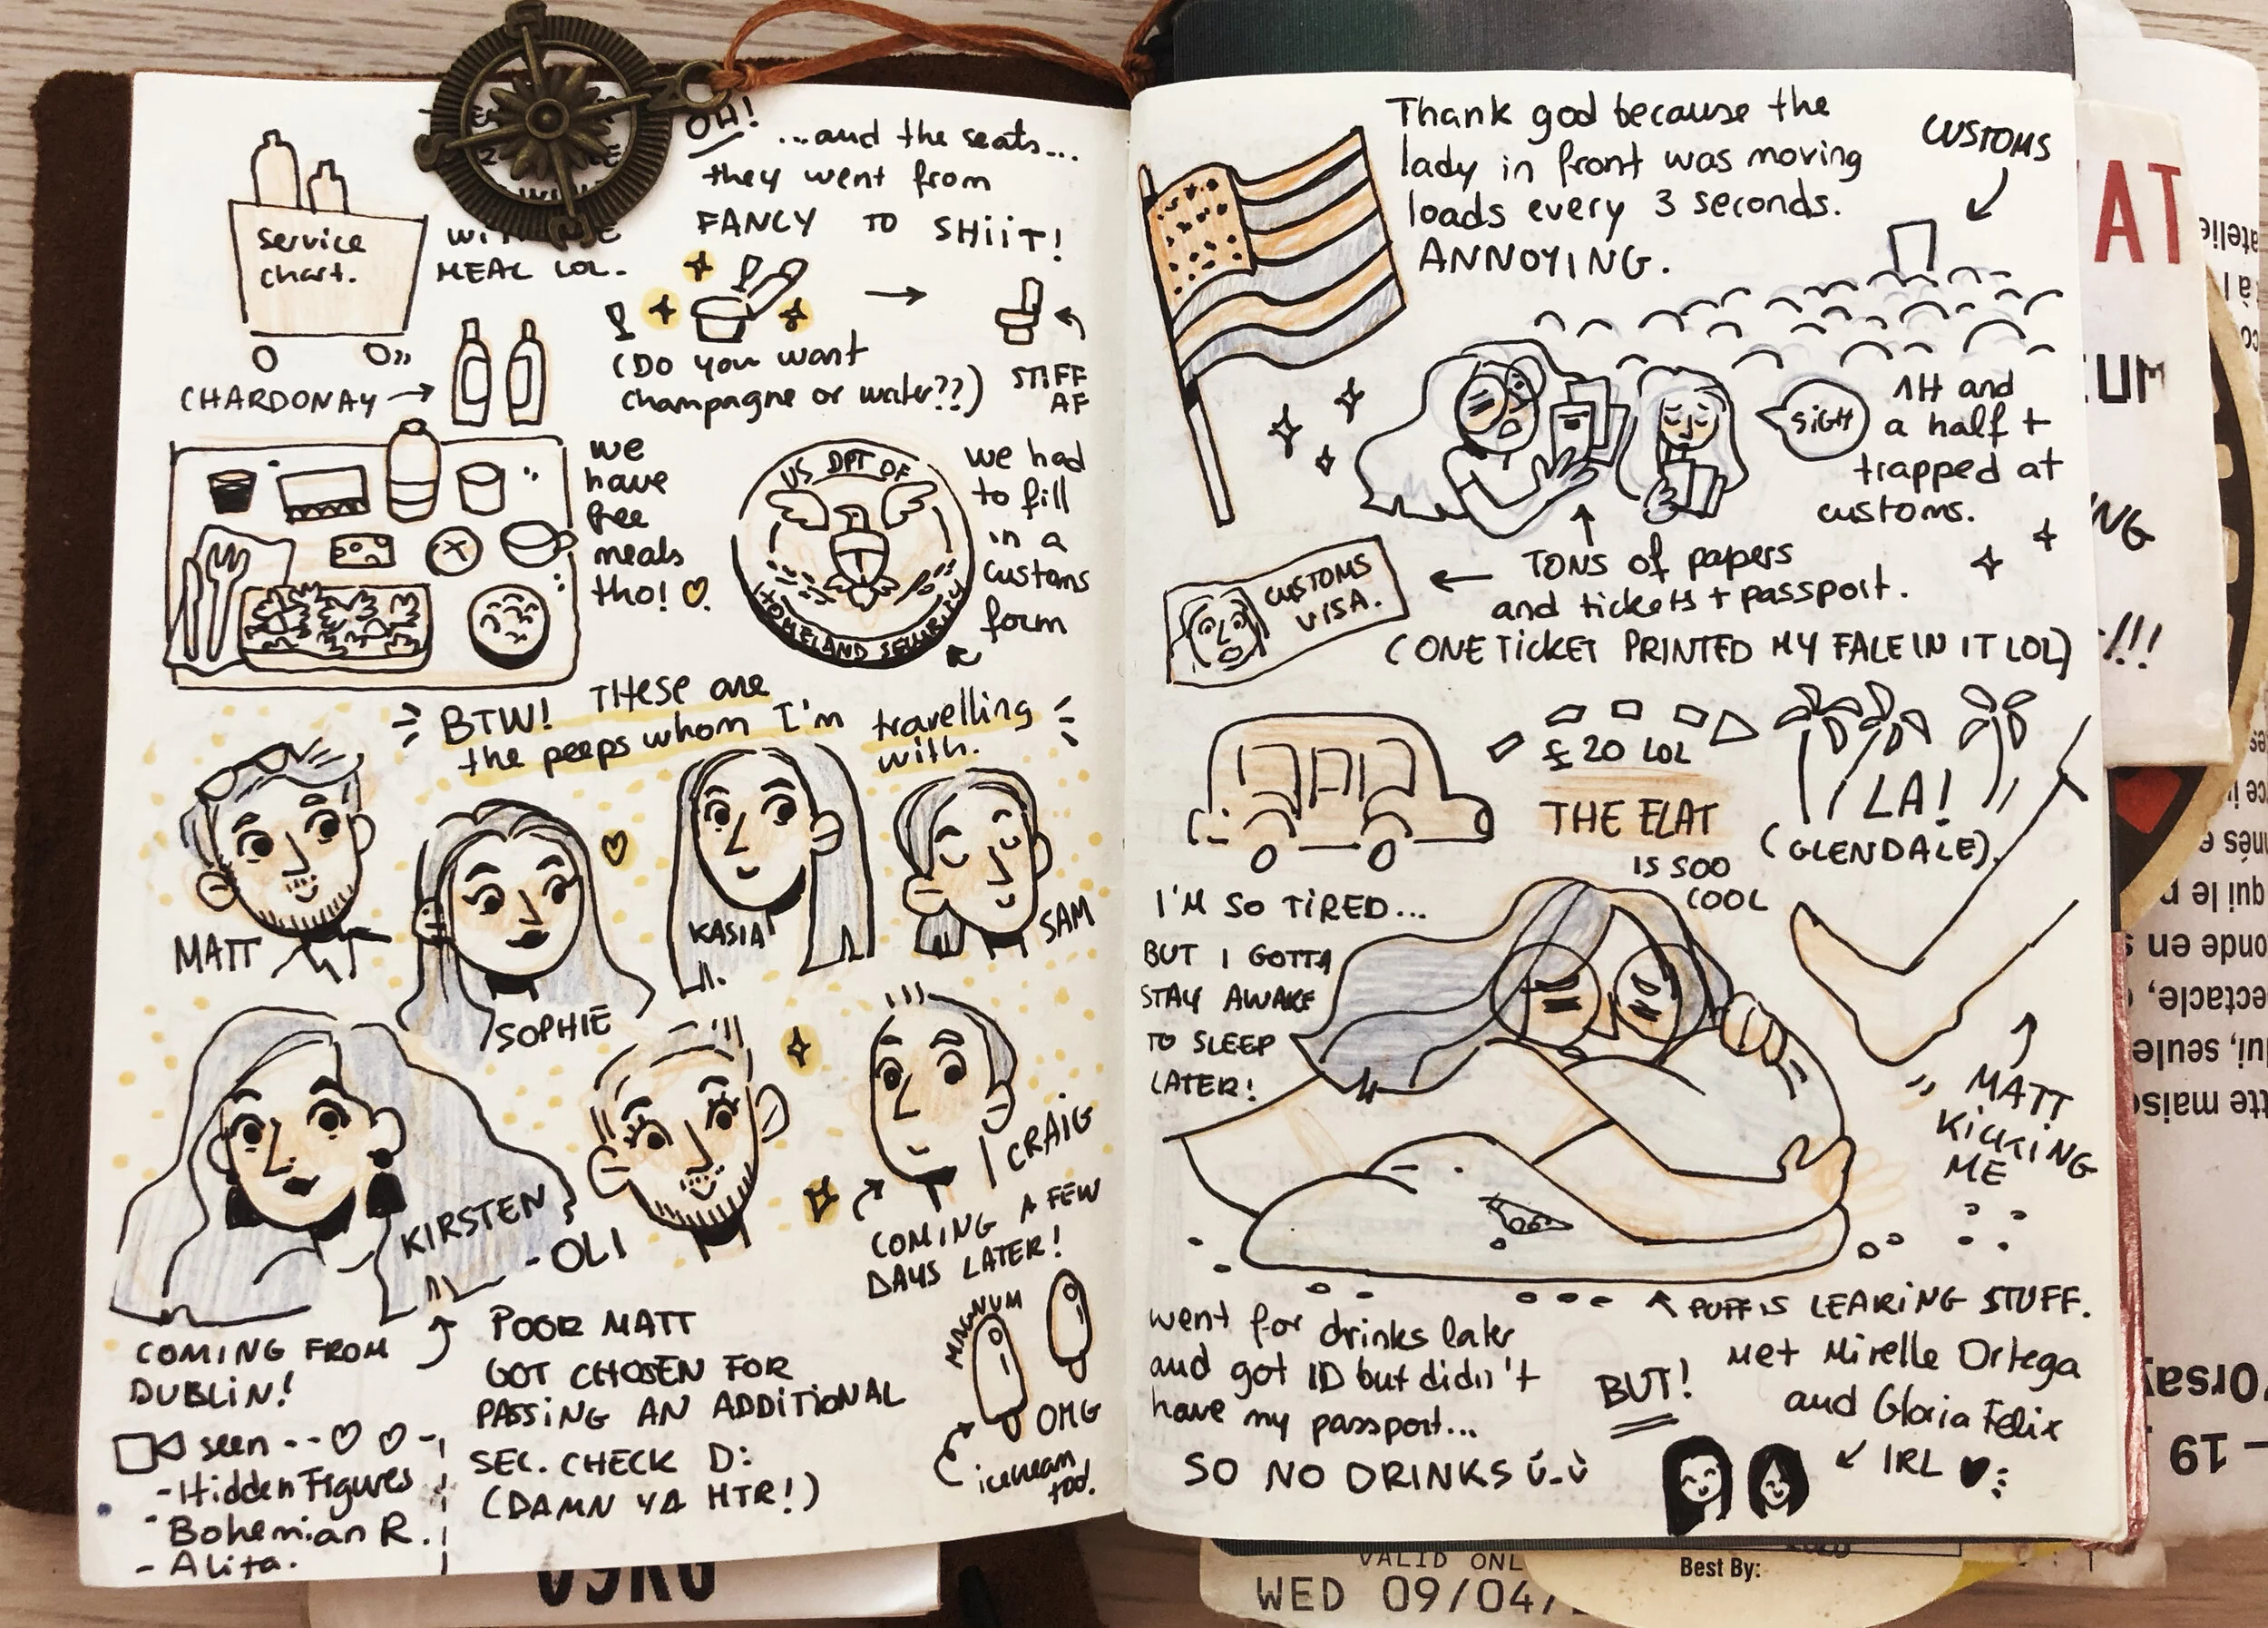 service
chart.
MEAL LOL.
OH!
...and the seats...
they went from
FANCY TO SHiiT!
(Do you want
champagne or water??)
STIFF
AF
CHARDONAY
we
have
free
meals
tho!
US DPT OF
HOMELAND SECURITY
we had
to fill
in a
customs
form
BTW! THese are
the peeps whom I'm travelling
with.
MATT
SOPHIE
KASIA
SAM
KIRSTEN
- OLI
CRAIG
COMING A FEW
DAYS LATER!
COMING FROM
DUBLiN!
seen
- Hidden Figures
- Bohemian R.
- Alita.
POOR MATT
GOT CHOSEN FOR
PASSiNG AN ADDiTiONAL
SEC. CHECK D:
(DAMN YA HTR!)
MAGNUM
OMG
icecream
too!
Thank god because the
lady in front was moving
loads every 3 seconds.
ANNOYING.
CUSTOMS
SiGH
1H and
a half +
trapped at
customs.
TONS of papers
and tickets + passport.
CUSTOMS
VISA.
(ONE TiCKET PRINTED MY FALE IN IT LOL)
£20 LOL
THE FLAT
IS SOO
COOL
LA!
(GLENDALE).
I'M SO TiRED...
BUT I GOTTA
STAY AWAKE
TO SLEEP
LATER!
MATT
KICKING
ME
PUFF IS LEAKING STUFF.
went for drinks later
and got ID but didn't
have my passport...
SO NO DRINKS
BUT!
Met Mirelle Ortega
and Gloria Félix
IRL
AT
NG
!!!
VALID ONL
WED 09/04/
Best By: